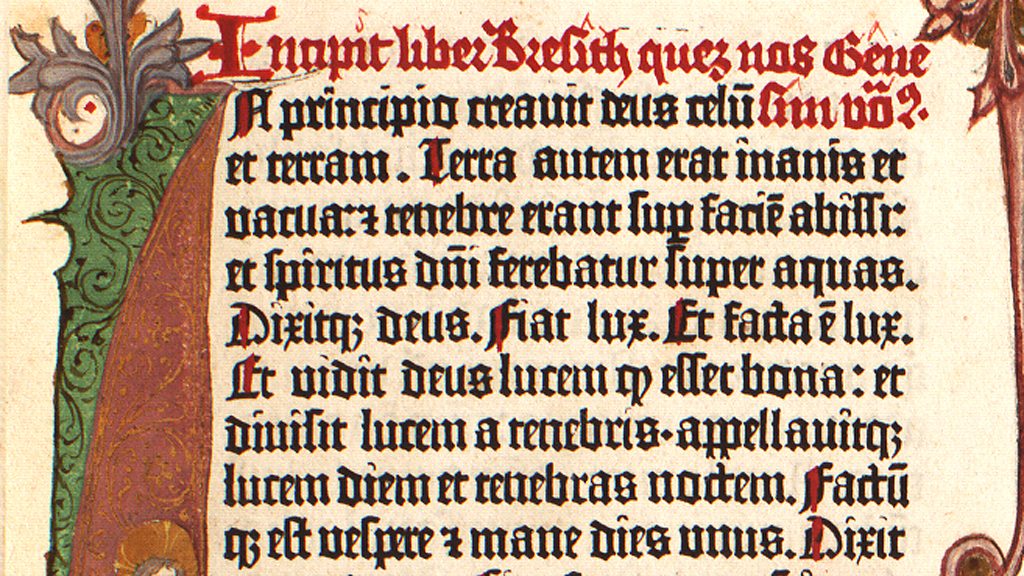 Incipit liber Bresith quez nos Gene
A principio creauit deus celū sim voc̄.
et terram. Terra autem erat inanis et
uacua: ⁊ tenebre erant sup̱ faciē abissi:
et spiritus dn̄i ferebatur super aquas.
Dixitqꝫ deus. Fiat lux. Et facta ē lux.
Et uidit deus lucem ꝙ esset bona: et
diuisit lucem a tenebris. appellauitqꝫ
lucem diem et tenebras noctem. Factū
qꝫ est vespere ⁊ mane dies unus. Dixit